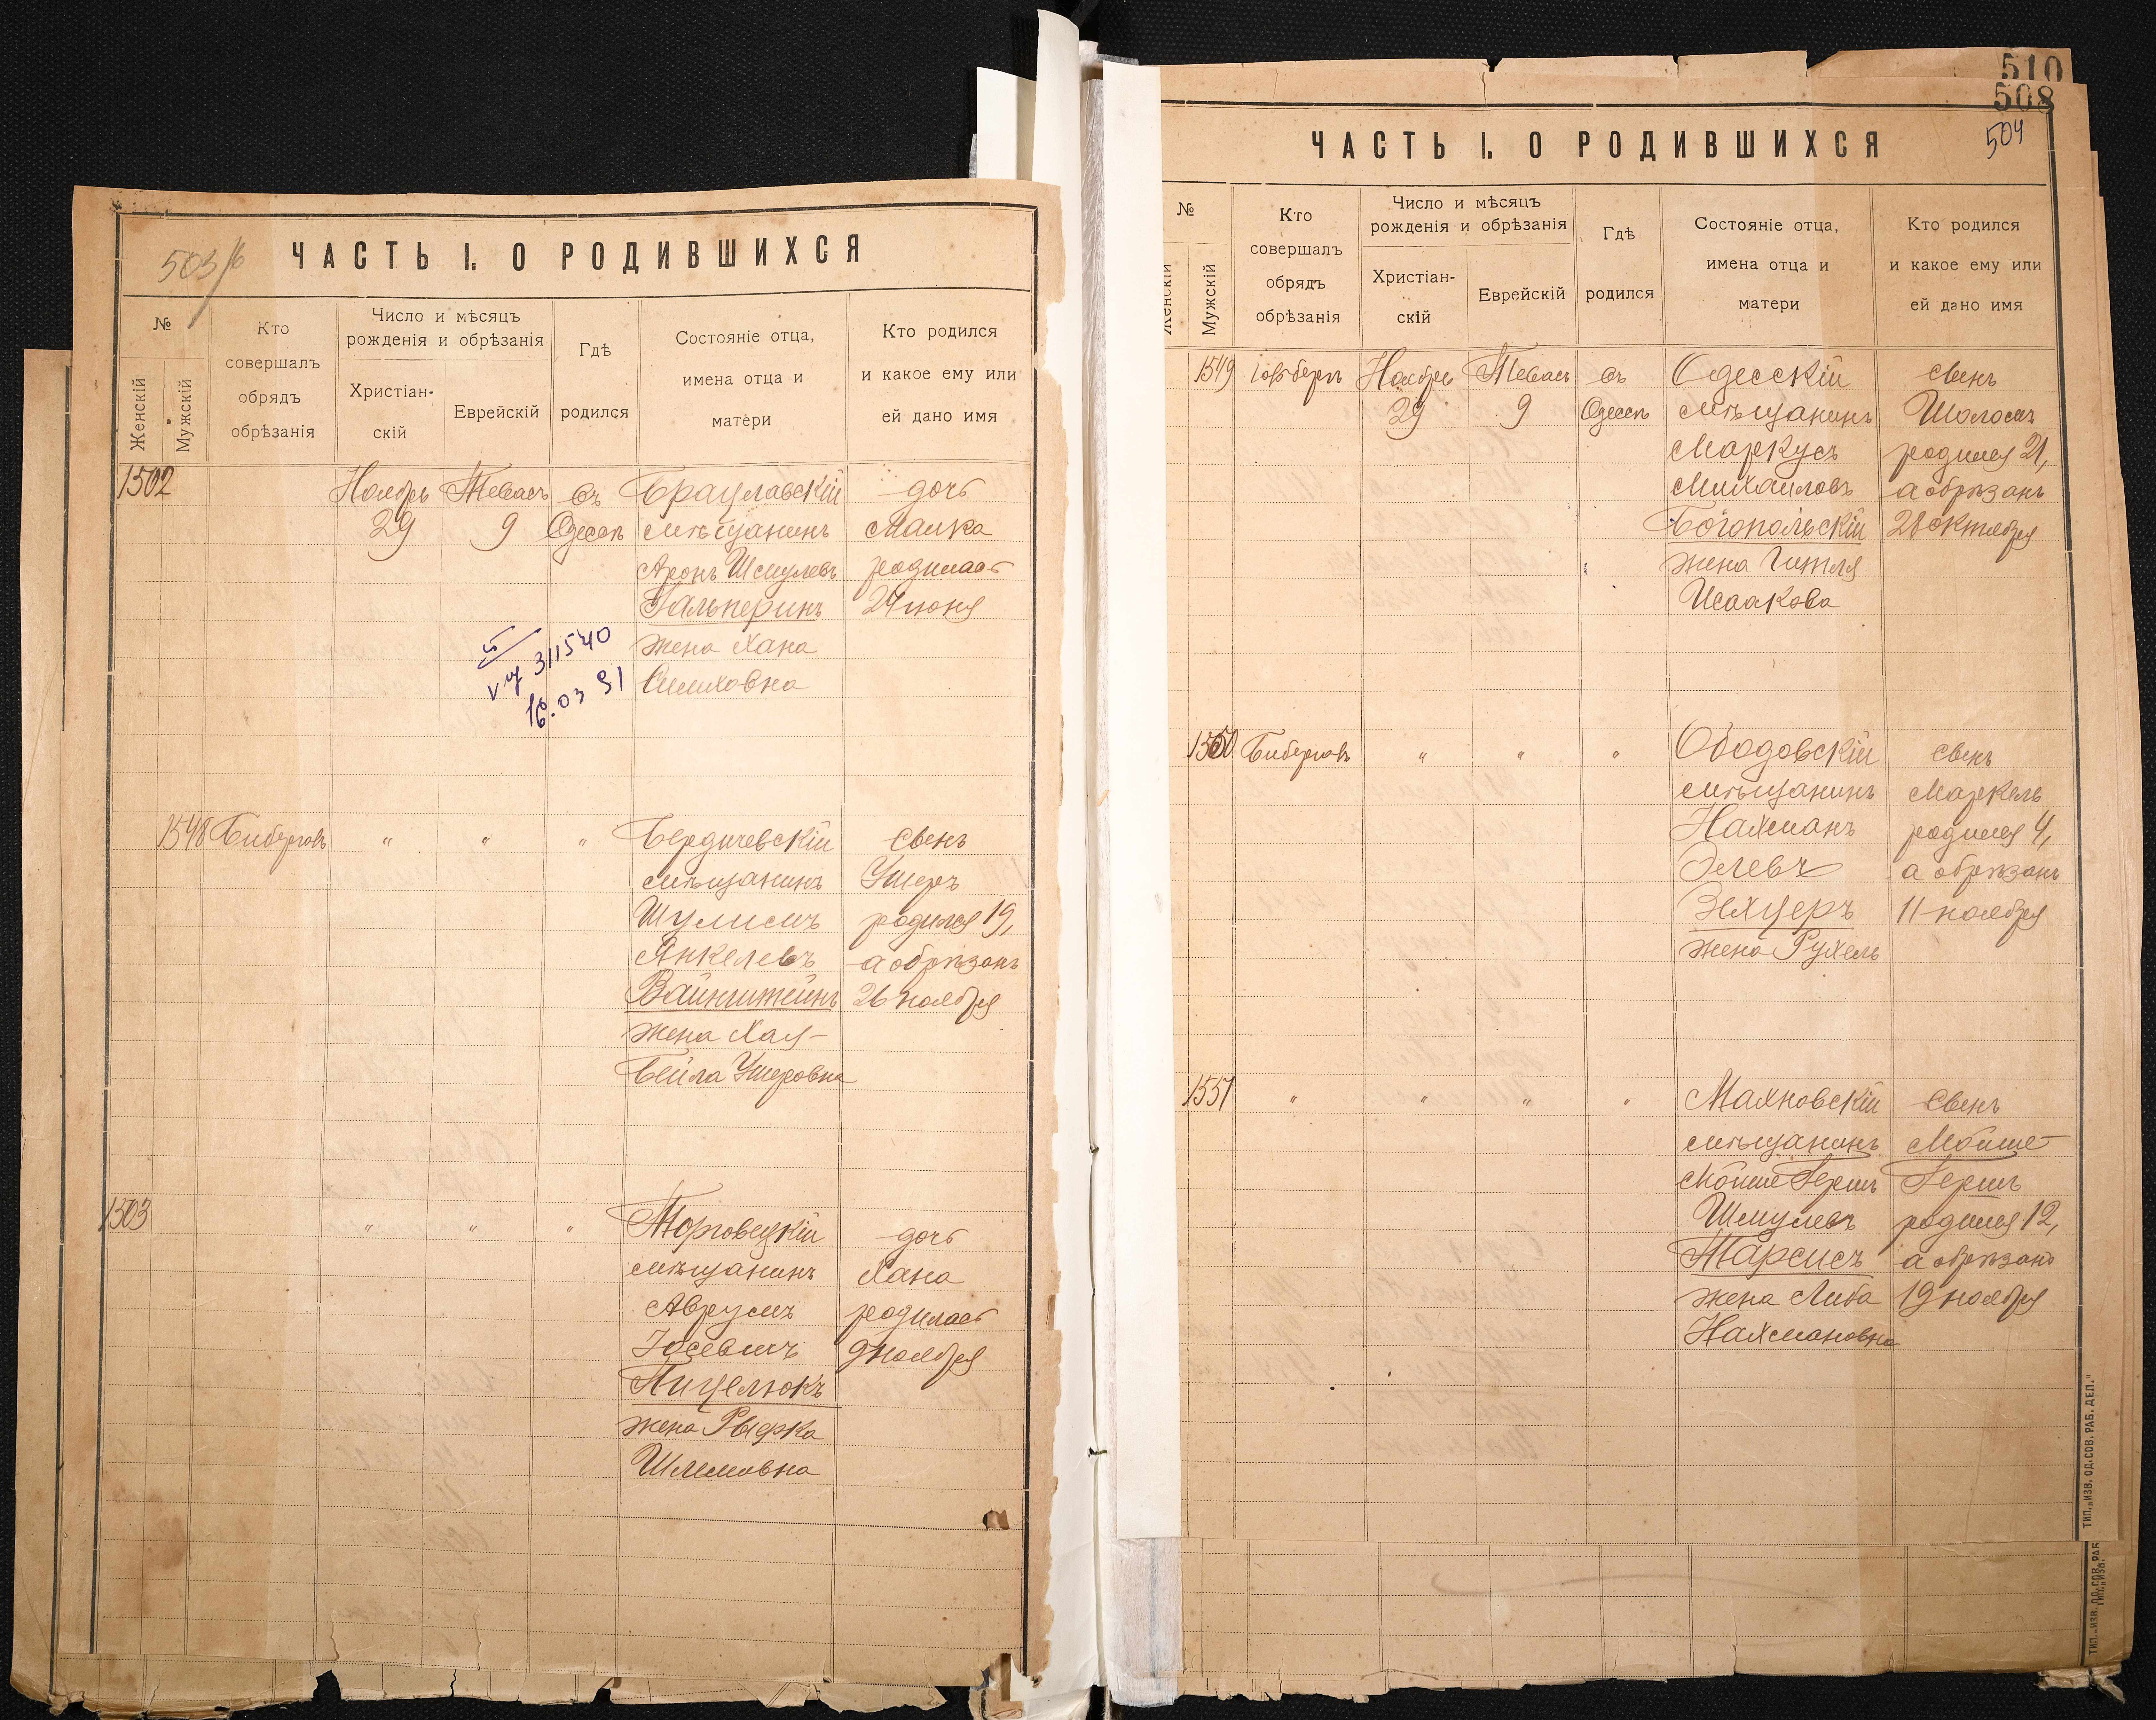 503/б
ЧАСТЬ I. О РОДИВШИХСЯ
№
Женскій
Мужскій
Кто
совершалъ
обрядъ
обрѣзанія
Число и мѣсяцъ
рожденія и обрѣзанія
Христіан-
скій
Еврейскій
Гдѣ
родился
Состояніе отца,
имена отца и
матери
Кто родился
и какое ему или
ей дано имя
1502 Ноябрь Тевасъ въ Брацлавскій дочь
29 9 Одессѣ мѣщанинъ Малка
Аронъ Шмулевъ родилась
Гальперинъ 24 іюня
жена Хана
Симховна
311540
16.03 91
1548 Бибергалъ " " " Бердичевскій сынъ
мѣщанинъ Ушеръ
Шулимъ родился 19,
Янкелевъ а обрѣзанъ
Вайнштейнъ 26 ноября
жена Хая-
Бейла Ушеровна
1503 " " " Торговецкій дочь
мѣщанинъ Хана
Аврумъ родилась
Іосевичъ 9 ноября
Пицелюкъ
жена Рыфка
Шлемовна
510
508
504
ЧАСТЬ I. О РОДИВШИХСЯ
№
Женскій
Мужскій
Кто
совершалъ
обрядъ
обрѣзанія
Число и мѣсяцъ
рожденія и обрѣзанія
Христіан-
скій
Еврейскій
Гдѣ
родился
Состояніе отца,
имена отца и
матери
Кто родился
и какое ему или
ей дано имя
1549 Ноябрь Тевасъ въ Одесскій сынъ
29 9 Одессѣ мѣщанинъ Шоломъ
Маркусъ родился 21,
Михайловъ а обрѣзанъ
Богопольскій 28 октября
жена Гитля
Исаакова
1550 Бибергалъ " " " Ободовскій сынъ
мѣщанинъ Маркель
Нахманъ родился 4,
Элевъ а обрѣзанъ
Зехцеръ 11 ноября
жена Рухель
1551 " " " " Махновскій сынъ
мѣщанинъ Мойше-
Мойше Герш Гершъ
Шмулевъ родился 12,
Тарсисъ а обрѣзанъ
жена Либа 19 ноября
Нахмановна
ТИП. „ИЗВ. ОД. СОВ. РАБ. ДЕП."
ТИП. „ИЗВ. ОД. СОВ. РАБ